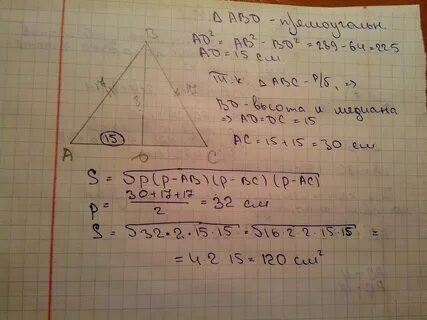 Δ ABD - прямоугольн.
AD² = AB² - BD² = 289 - 64 = 225
AD = 15 см
Т.к. Δ ABC - р/б, =>
BD - высота и медиана
=> AD = DC = 15
AC = 15 + 15 = 30 см
B
17
8
17
15
A
D
C
S = √p(p-AB)(p-BC)(p-AC)
p = (30+17+17)/2 = 32 см
S = √32·2·15·15 = √16·2·2·15·15 =
= 4·2·15 = 120 см²